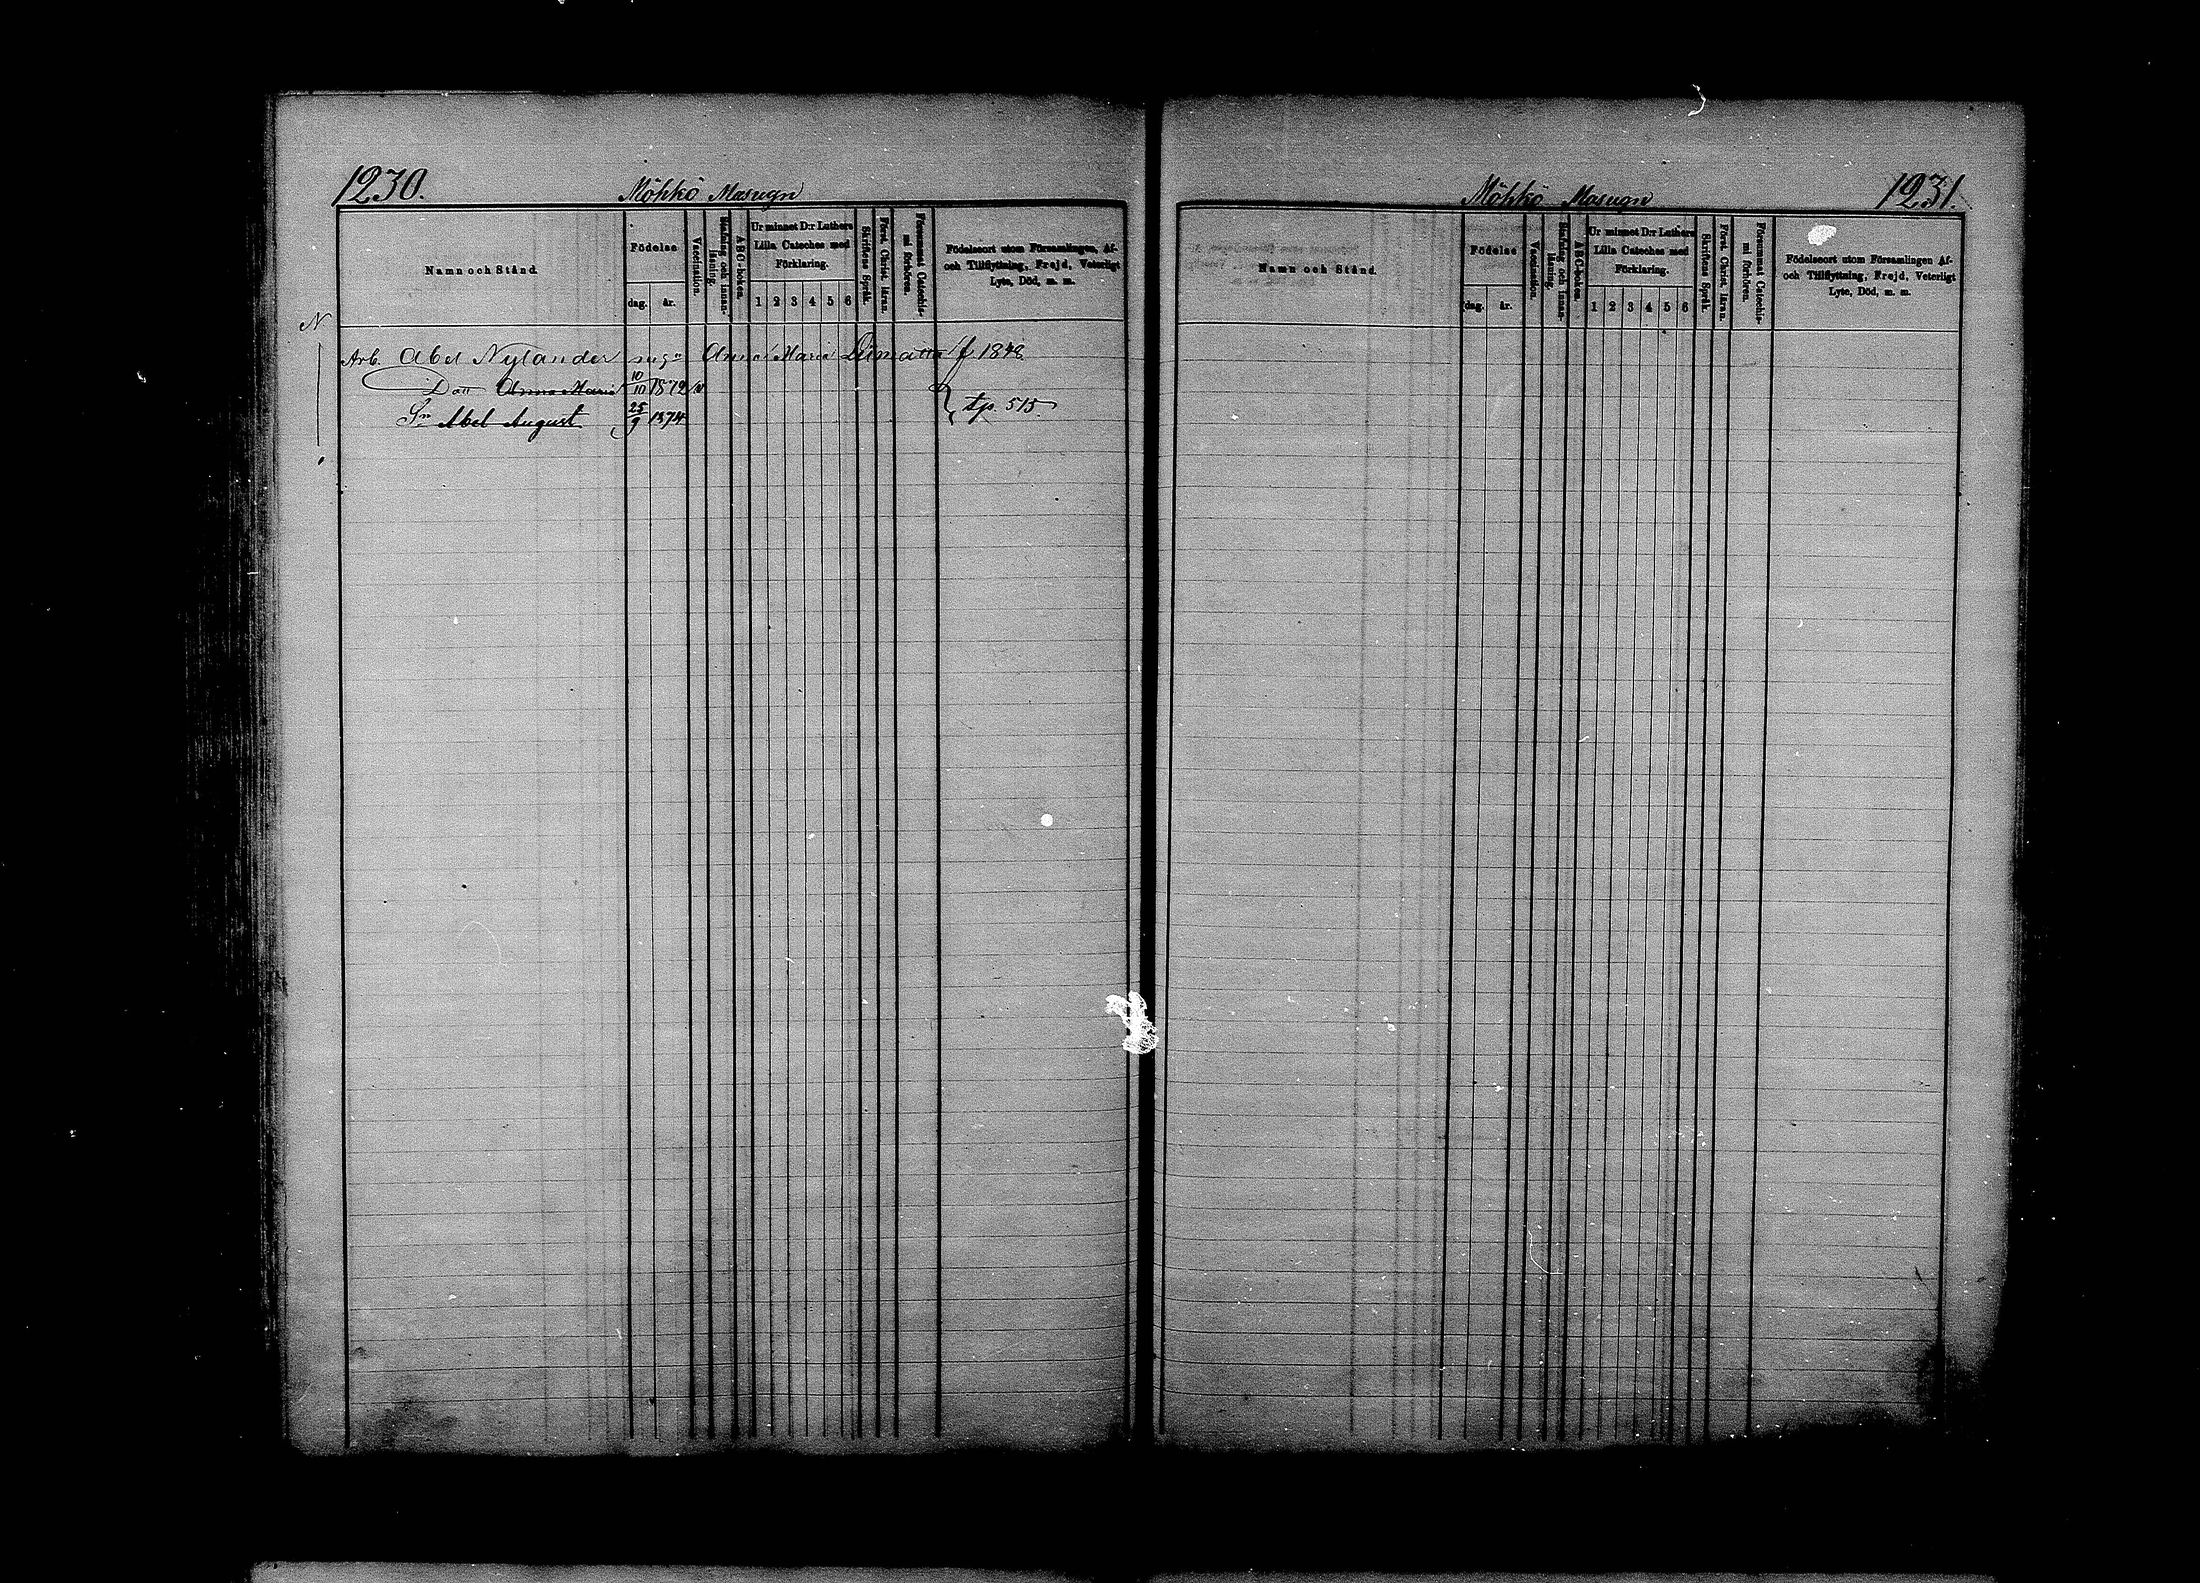 1230.
Möhkö Masugn
Namn och Stånd.
Födelse
dag. år.
Vaccination.
Stafning och Innan-läsning.
ABC-boken.
Ur minnet D:r Luthers
Lilla Cateches med
Förklaring.
1 2 3 4 5 6
Skriftens Språk.
Först. Christ. läran.
Försummat Catechis-
mi förhören.
Födelseort utom Församlingen, Af-
och Tillflyttning, Frejd, Veterligt
Lyte, Död, m. m.
N
Arb. Abel Nylander Anna Maria f 1848
Dott Anna Maria 10/10 1872 v
Sn Abel August 25/9 1874
tp. 515.
Möhkö Masugn
1231.
Namn och Stånd.
Födelse
dag. år.
Vaccination.
Stafning och Innan-läsning.
ABC-boken.
Ur minnet D:r Luthers
Lilla Cateches med
Förklaring.
1 2 3 4 5 6
Skriftens Språk.
Först. Christ. läran.
Försummat Catechis-
mi förhören.
Födelseort utom Församlingen Af-
och Tillflyttning, Frejd, Veterligt
Lyte, Död, m. m.